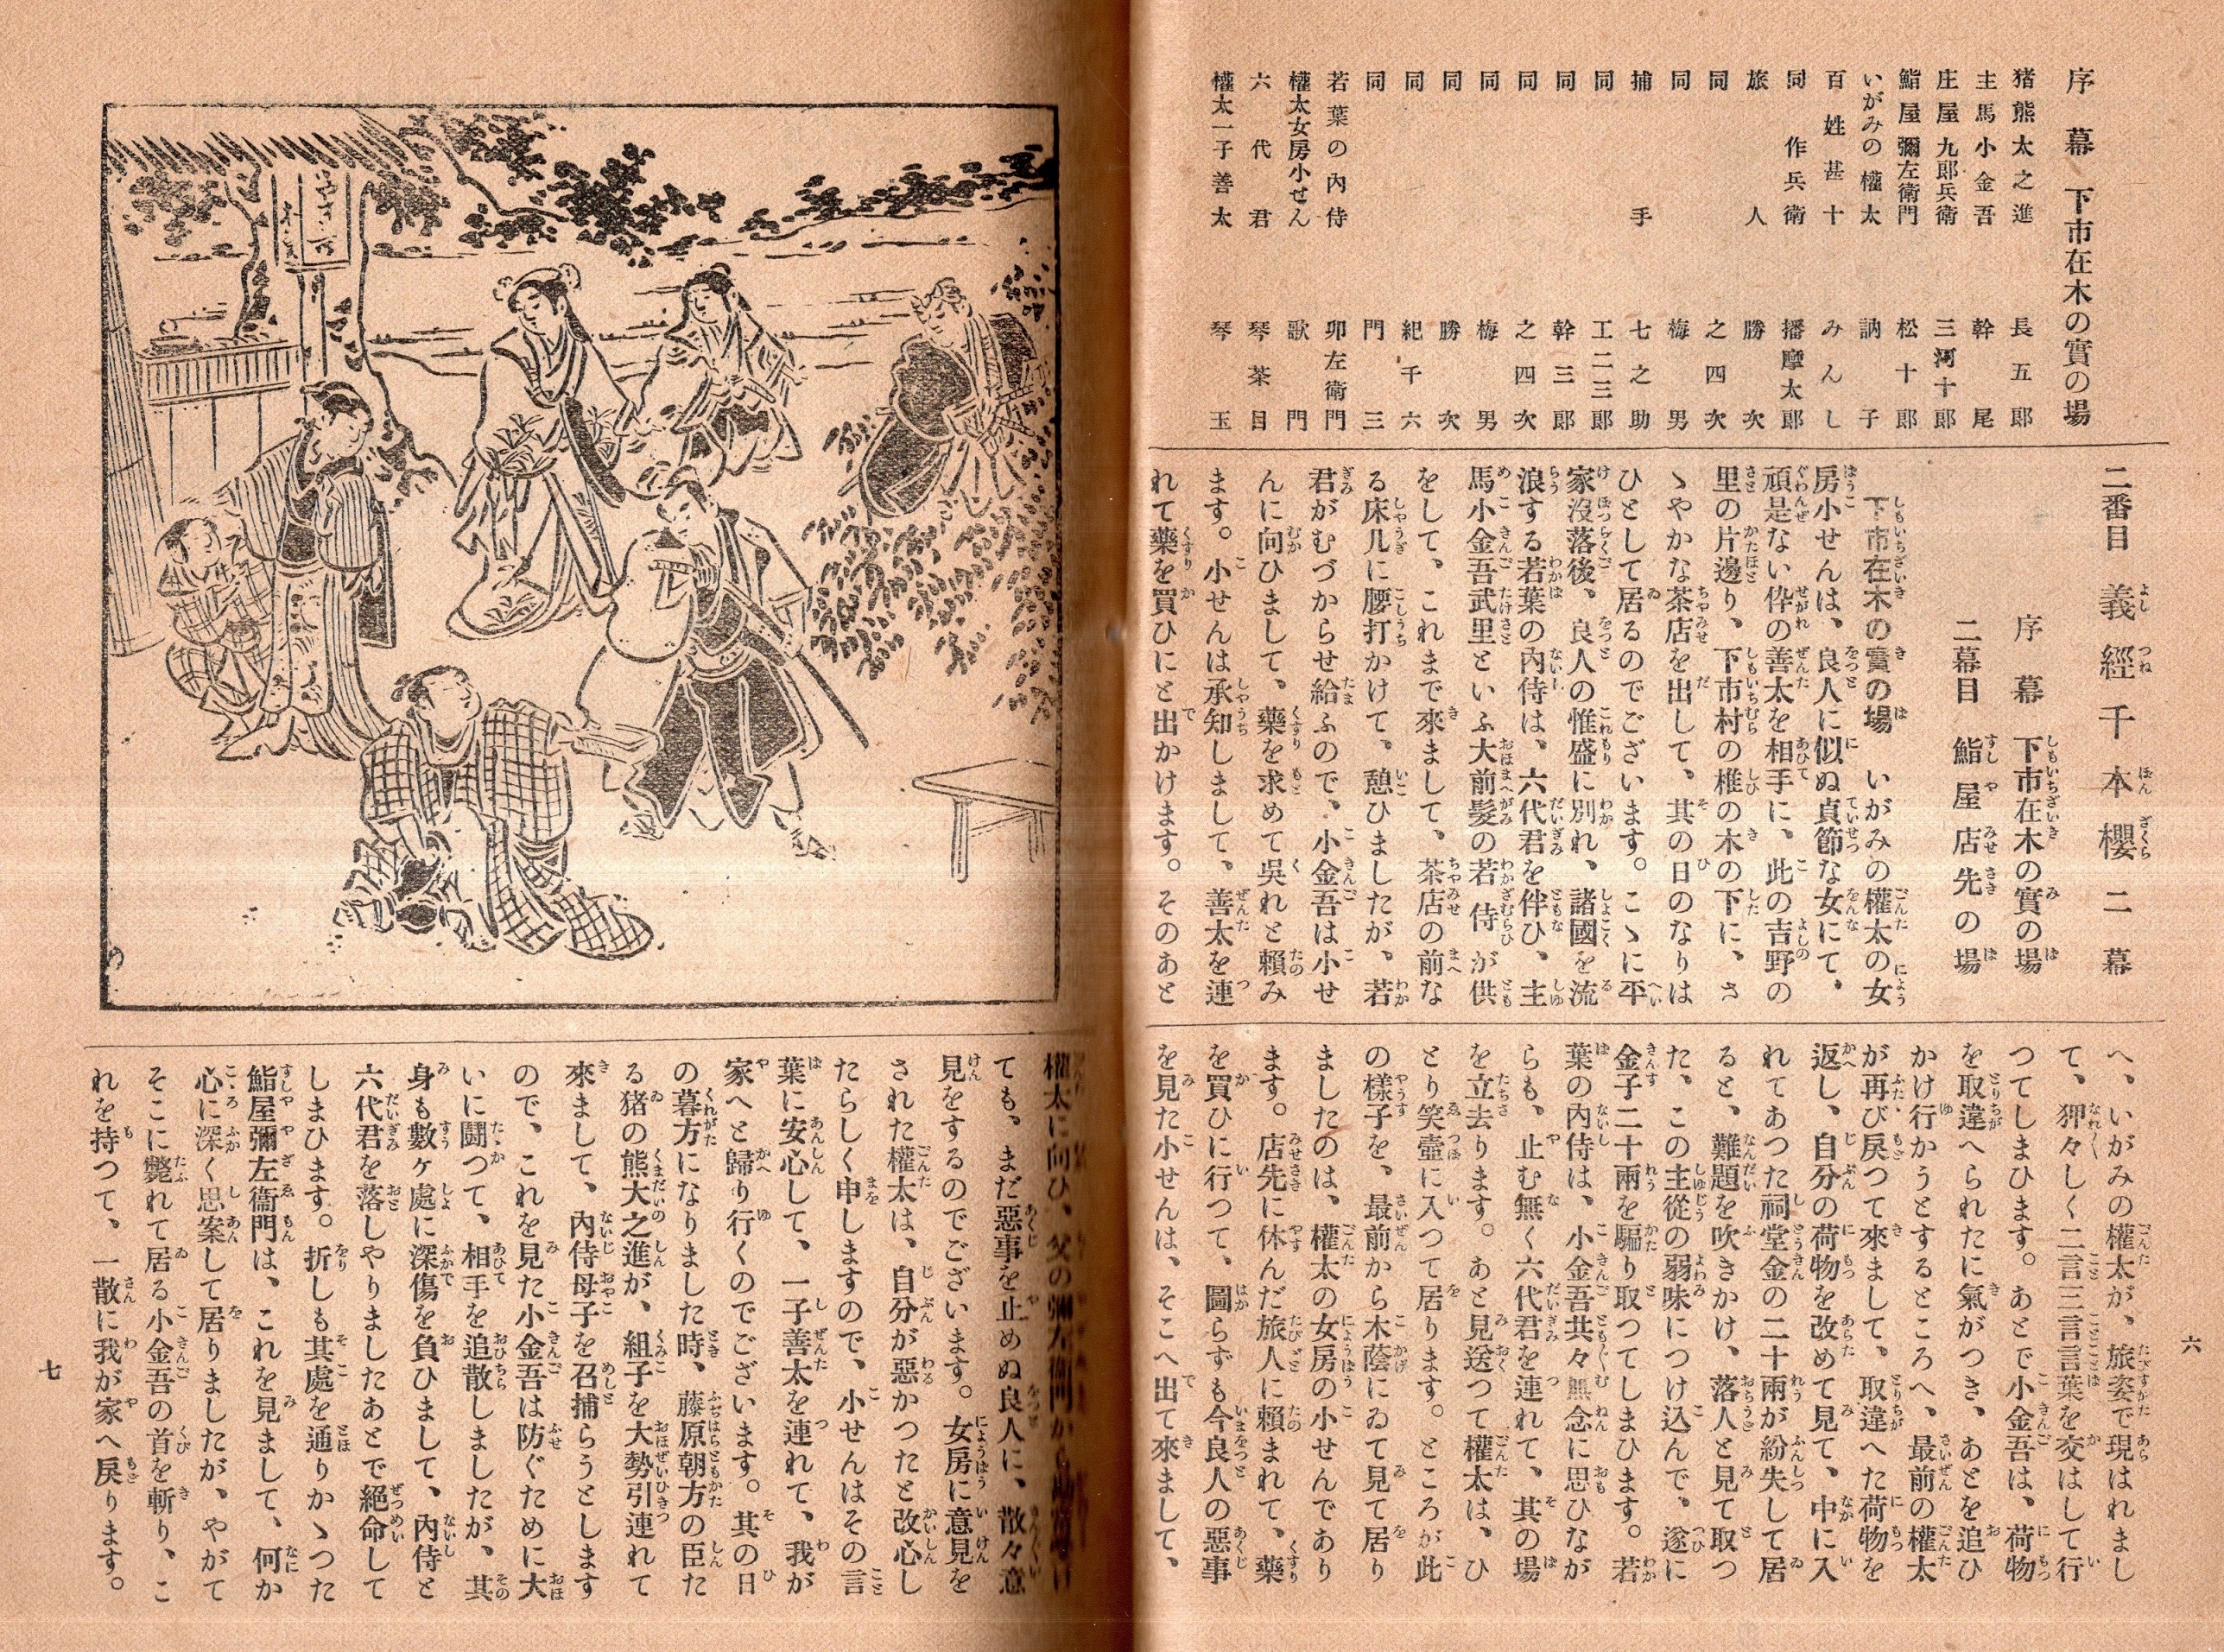 序幕 下市在木の實の場
猪熊大之進 長五郎
主馬小金吾 幹尾
庄屋九郎兵衛 三河十郎
鮨屋彌左衛門 松十郎
いがみの權太 訥子
百姓甚十 みんし
同作兵衛 播摩太郎
旅人 勝次
同 之四次
同 梅男
捕手 七之助
同 工二三郎
同 幹三郎
同 之四次
同 梅男
同 勝次
同 紀千六
同 門三
若葉の内侍 卯左衛門
權太女房小せん 歌門
六代君 琴茶目
權太一子善太 琴玉
二番目 義經千本櫻 二幕
序幕 下市在木の實の場
二幕目 鮨屋店先の場
下市在木の實の場 いがみの權太の女
房小せんは、良人に似ぬ貞節な女にて、
頑是ない伜の善太を相手に、此の吉野の
里の片邊り、下市村の椎の木の下に、さ
ゝやかな茶店を出して、其の日のなりは
ひとして居るのでございます。こゝに平
家沒落後、良人の惟盛に別れ、諸國を流
浪する若葉の内侍は、六代君を伴ひ、主
馬小金吾武里といふ大前髮の若侍が供
をして、これまで來まして、茶店の前な
る床几に腰打かけて、憩ひましたが、若
君がむづからせ給ふので、小金吾は小せ
んに向ひまして、藥を求めて吳れと賴み
ます。小せんは承知しまして、善太を連
れて藥を買ひにと出かけます。そのあと
へ、いがみの權太が、旅姿で現はれまし
て、狎々しく二言三言言葉を交はして行
つてしまひます。あとで小金吾は、荷物
を取違へられたに氣がつき、あとを追ひ
かけ行かうとするところへ、最前の權太
が再び戻つて來まして、取違へた荷物を
返し、自分の荷物を改めて見て、中に入
れてあつた祠堂金の二十兩が紛失して居
ると、難題を吹きかけ、落人と見て取つ
た、この主從の弱味につけ込んで、遂に
金子二十兩を騙り取つてしまひます。若
葉の内侍は、小金吾共々無念に思ひなが
らも、止む無く六代君を連れて、其の場
を立去ります。あと見送つて權太は、ひ
とり笑壺に入つて居ります。ところが此
の樣子を、最前から木蔭にゐて見て居り
ましたのは、權太の女房の小せんであり
ます。店先に休んだ旅人に賴まれて、藥
を買ひに行つて、圖らずも今良人の惡事
を見た小せんは、そこへ出て來まして、
六
權太に向ひ、父の彌左衛門から
ても、まだ惡事を止めぬ良人に、散々意
見をするのでございます。女房に意見を
された權太は、自分が惡かつたと改心し
たらしく申しますので、小せんはその言
葉に安心して、一子善太を連れて、我が
家へと歸り行くのでございます。其の日
の暮方になりました時、藤原朝方の臣た
る猪の熊大之進が、組子を大勢引連れて
來まして、内侍母子を召捕らうとします
ので、これを見た小金吾は防ぐために大
いに鬪つて、相手を追散しましたが、其
身も數ヶ處に深傷を負ひまして、内侍と
六代君を落しやりましたあとで絕命して
しまひます。折しも其處を通りかゝつた
鮨屋彌左衞門は、これを見まして、何か
心に深く思案して居りましたが、やがて
そこに斃れて居る小金吾の首を斬り、こ
れを持つて、一散に我が家へ戻ります。
七